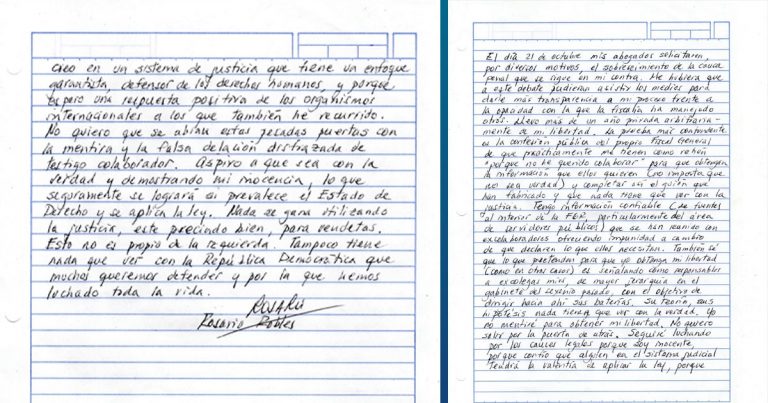 creo en un sistema de justicia que tiene un enfoque
garantista, defensor de los derechos humanos, y porque
espero una respuesta positiva de los organismos
internacionales a los que también he recurrido.
No quiero que se abran estas pesadas puertas con
la mentira y la falsa delación disfrazada de
testigo colaborador. Aspiro a que sea con la
verdad y demostrando mi inocencia, lo que
seguramente se logrará si prevalece el Estado de
Derecho y se aplica la ley. Nada se gana utilizando
la justicia, este preciado bien, para vendetas.
Esto no es propio de la izquierda. Tampoco tiene
nada que ver con la República Democrática que
muchos queremos defender y por la que hemos
luchado toda la vida.
ROSARIO
Rosario Robles
El día 21 de octubre mis abogados solicitaron,
por diversos motivos, el sobreseimiento de la causa
penal que se sigue en mi contra. Me hubiera que
a este debate pudieran asistir los medios para
darle más transparencia a mi proceso frente a
la opacidad con la que la fiscalía ha manejado
otros. Llevo más de un año privada arbitraria-
mente de mi libertad. La prueba más contundente
es la confesión pública del propio Fiscal General
de que prácticamente me tienen como rehén
"porque no he querido colaborar" para que obtengan
la información que ellos quieren (no importa que
no sea verdad) y completar así el guión que
han fabricado y que nada tiene que ver con la
justicia. Tengo información confiable (de fuentes
al interior de la FGR, particularmente del área
de servidores públicos) que se han reunido con
excolaboradores ofreciendo impunidad a cambio
de que declaren lo que ellos necesitan. También sé
que lo que pretenden para que yo obtenga mi libertad
(como en otros casos) es señalando como responsables
a excolegas míos, de mayor jerarquía en el
gabinete del sexenio pasado, con el objetivo de
dirigir hacia ahí sus baterías. Su teoría, sus
hipótesis nada tienen que ver con la verdad. Yo
no mentiré para obtener mi libertad. No quiero
salir por la puerta de atrás. Seguiré luchando
por los cauces legales porque soy inocente,
porque confío que alguien en el sistema judicial
tendrá la valentía de aplicar la ley, porque